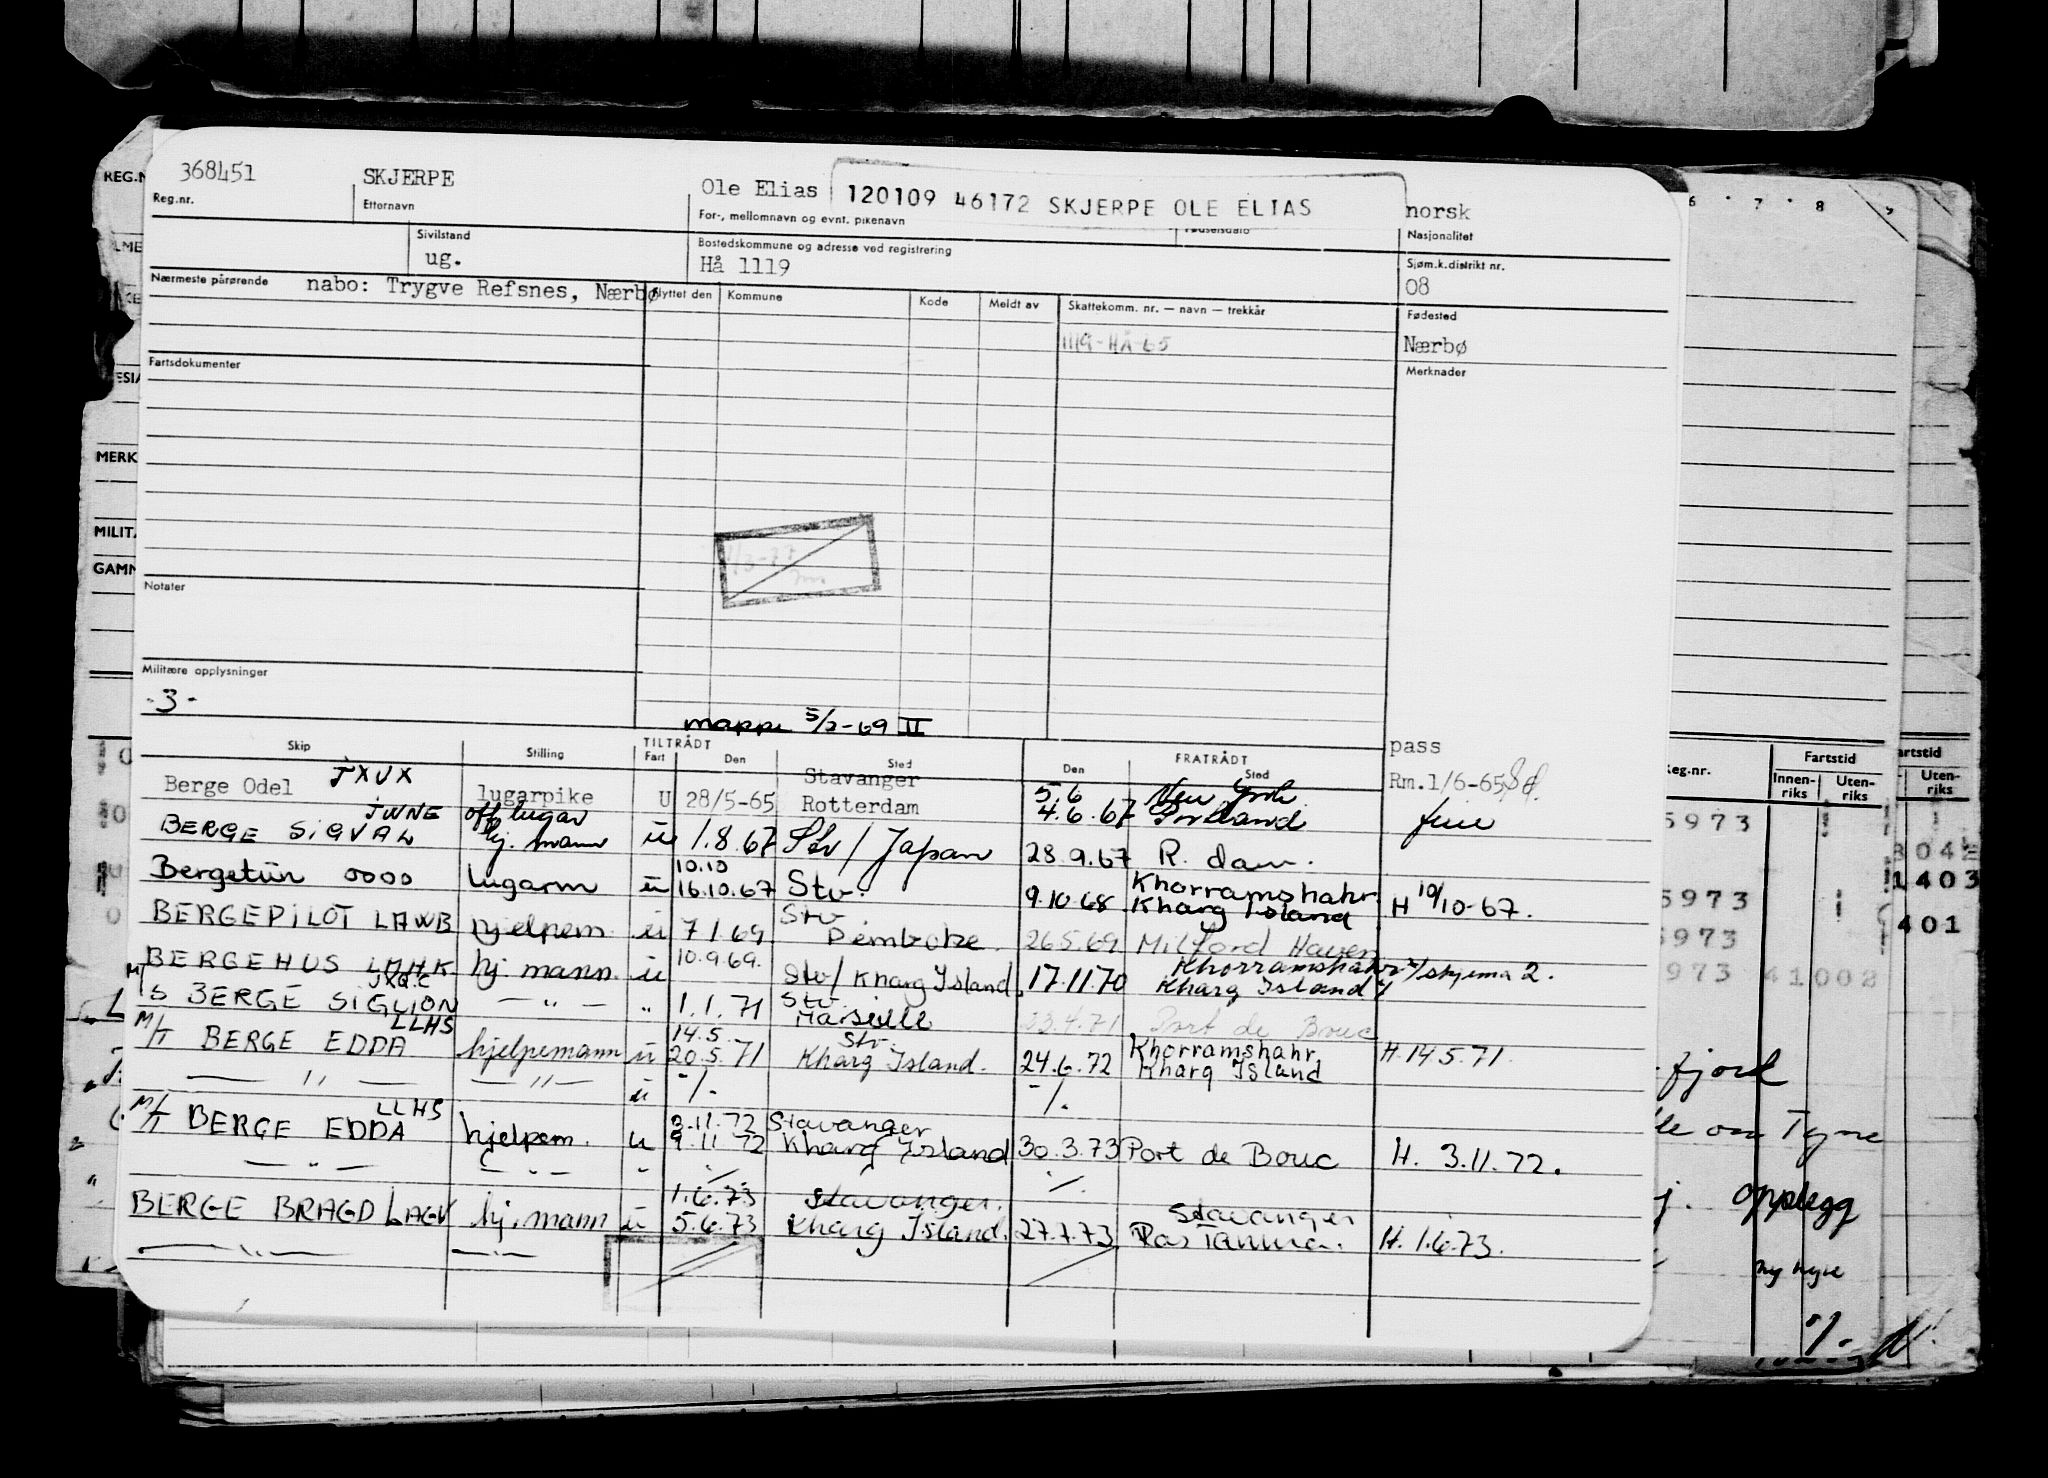 368451 SKJERPE Ole Elias 120109 46172 SKJERPE OLE ELIAS norsk
Reg.nr. Etternavn For-, mellomnavn og evnt. pikenavn Fødselsdato Nasjonalitet
Sivilstand Bostedskommune og adresse ved registrering Sjøm.k.distrikt nr.
ug. Hå 1119 08
Nærmeste pårørende nabo: Trygve Refsnes, Nærbø Flyttet den Kommune Kode Meldt av Skattekomm. nr. — navn — trekkår Fødested
1119-HÅ-65 Nærbø
Fartsdokumenter Merknader
Notater
Militære opplysninger
-3-
mappe 5/2-69 II
Skip Stilling TILTRÅDT FRATRÅDT pass
Fart Den Sted Den Sted
Berge Odel JXUX lugarpike U 28/5-65 Stavanger Rotterdam 5.6 4.6.67 New York Portland Rm.1/6-65
BERGE SIGVAL JWNE off lugar hj. mann u 1.8.67 Stv / Japan 28.9.67 R. dam. ferie
Bergetun OOOO lugarm u 10.10 16.10.67 Stv. 9.10.68 Khorramshahr Kharg Island H 10/10-67.
BERGEPILOT LAWB hjelpem. u 7.1.69 Stv Pembroke. 26.5.69 Milford Haven
BERGEHUS LMHK hj. mann. u 10.9.69. Stv/ Kharg Island. 17.11.70 Khorramshahr Kharg Island 1/skjema 2.
M/S BERGE SIGLION JXQC — " — " 1.1.71 Stv. Marseille 23.4.71 Port de Bouc
M/T BERGE EDDA LLHS hjelpemann u 14.5. 20.5.71 Stv. Kharg Island. 24.6.72 Khorramshahr, Kharg Island H. 14.5.71.
— " — — " — u -/.- -/.
M/T BERGE EDDA LLHS hjelpem. u 3.11.72 9.11.72 Stavanger Kharg Island 30.3.73 Port de Bouc H. 3.11.72.
— " — — " — " -/. -/.
BERGE BRAGD LAGV hj. mann u 1.6.73 5.6.73 Stavanger. Kharg Island. 27.7.73 Stavanger Ras Tanura. H. 1.6.73.
— " — — " —
REG.N
MERK
MILITÆ
GAMM
6 7 8
Reg.nr. Fartstid Fartstid
Innen-riks Uten-riks Uten-riks
5973
1403
5973
401
5973
973 41002
fjord
Tyne
opplegg